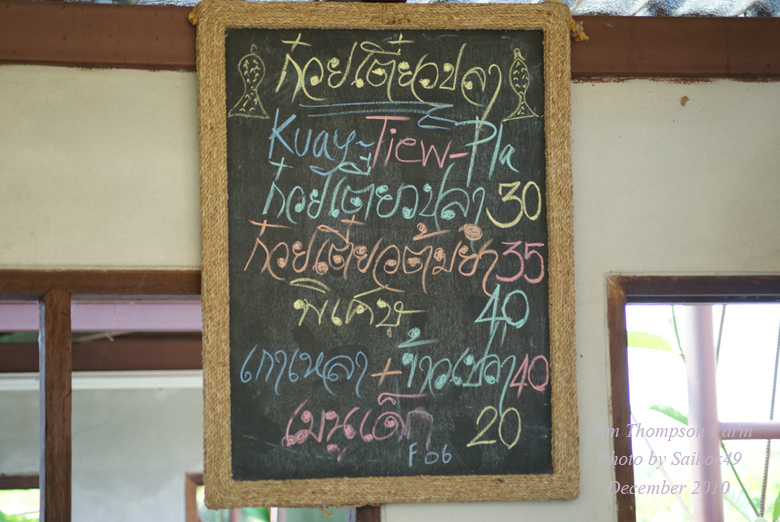 ก๋วยเตี๋ยวปลา
Kuay-Tiew-Pla
ก๋วยเตี๋ยวปลา 30
ก๋วยเตี๋ยวต้มยำ 35
พิเศษ 40
เกาเหลา + ข้าวเปล่า 40
เมนูเด็ก 20
F 06
Jim Thompson Farm
Photo by Saikor49
December 2010